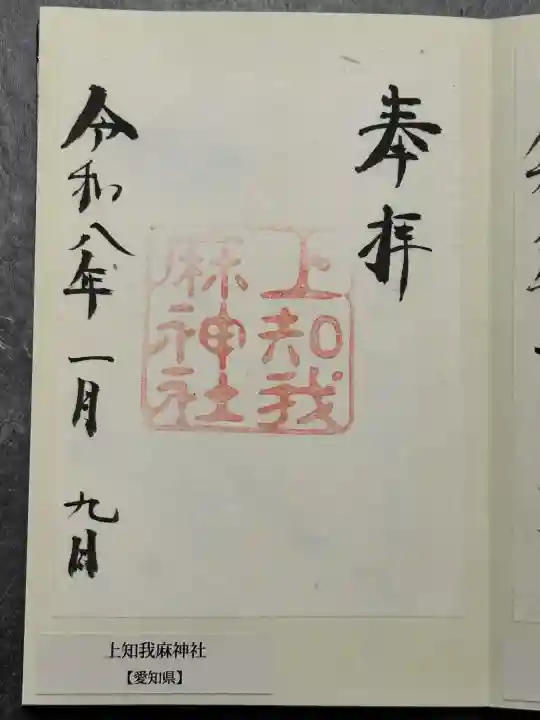 奉拝
上知我
麻神社
令和八年一月九日
上知我麻神社
【愛知県】